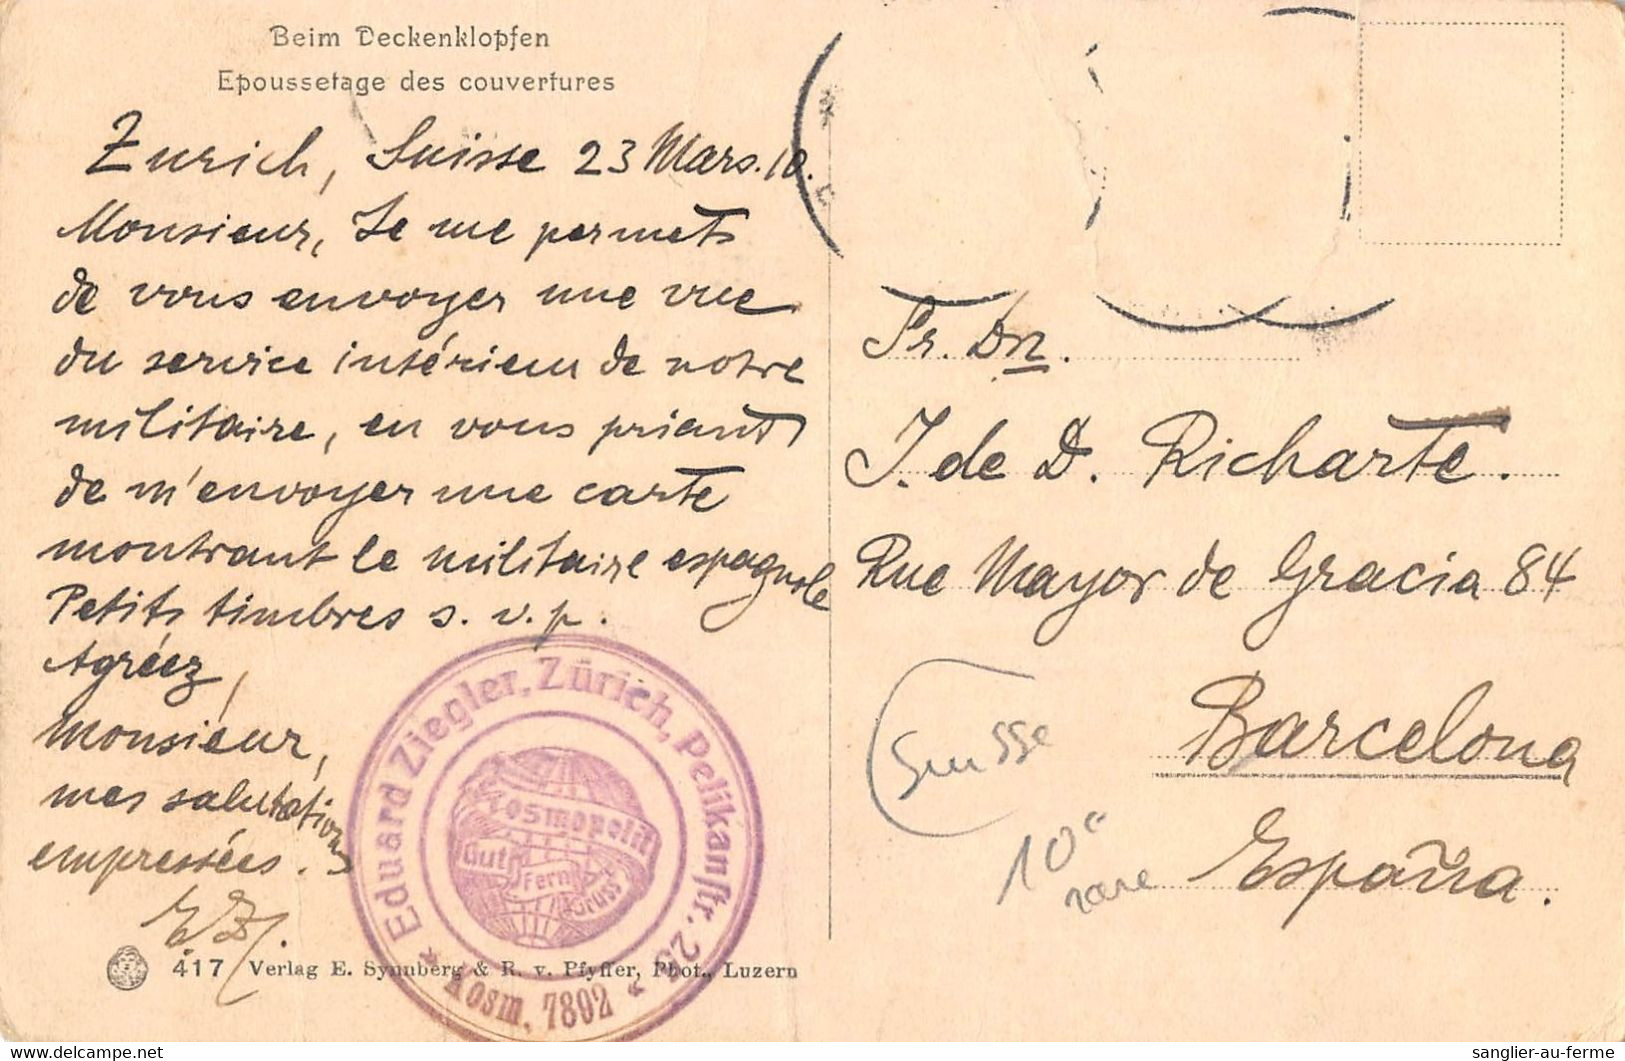 Beim Deckenklopfen
Epoussetage des couvertures
Zurich, Suisse 23 Mars. 10.
Monsieur, Je me permets
de vous envoyer une vue
du service intérieur de notre
militaire, en vous priant
de m'envoyer une carte
montrant le militaire espagnole
Petits timbres s. v. p.
Agréez,
monsieur,
mes salutations
empressées.
E. Z.
417 Verlag E. Synnberg & R. v. Pfyffer, Phot., Luzern
* Eduard Ziegler, Zürich, Pelikanstr. 23 *
Kosm. 7802
Cosmopolit
Gut
Fern
Gruss
Sr. Dn.
J. de D. Richarte.
Rue Mayor de Gracia 84
Barcelona
España.
Suisse
10 €
rare
delcampe.net
sanglier-au-ferme